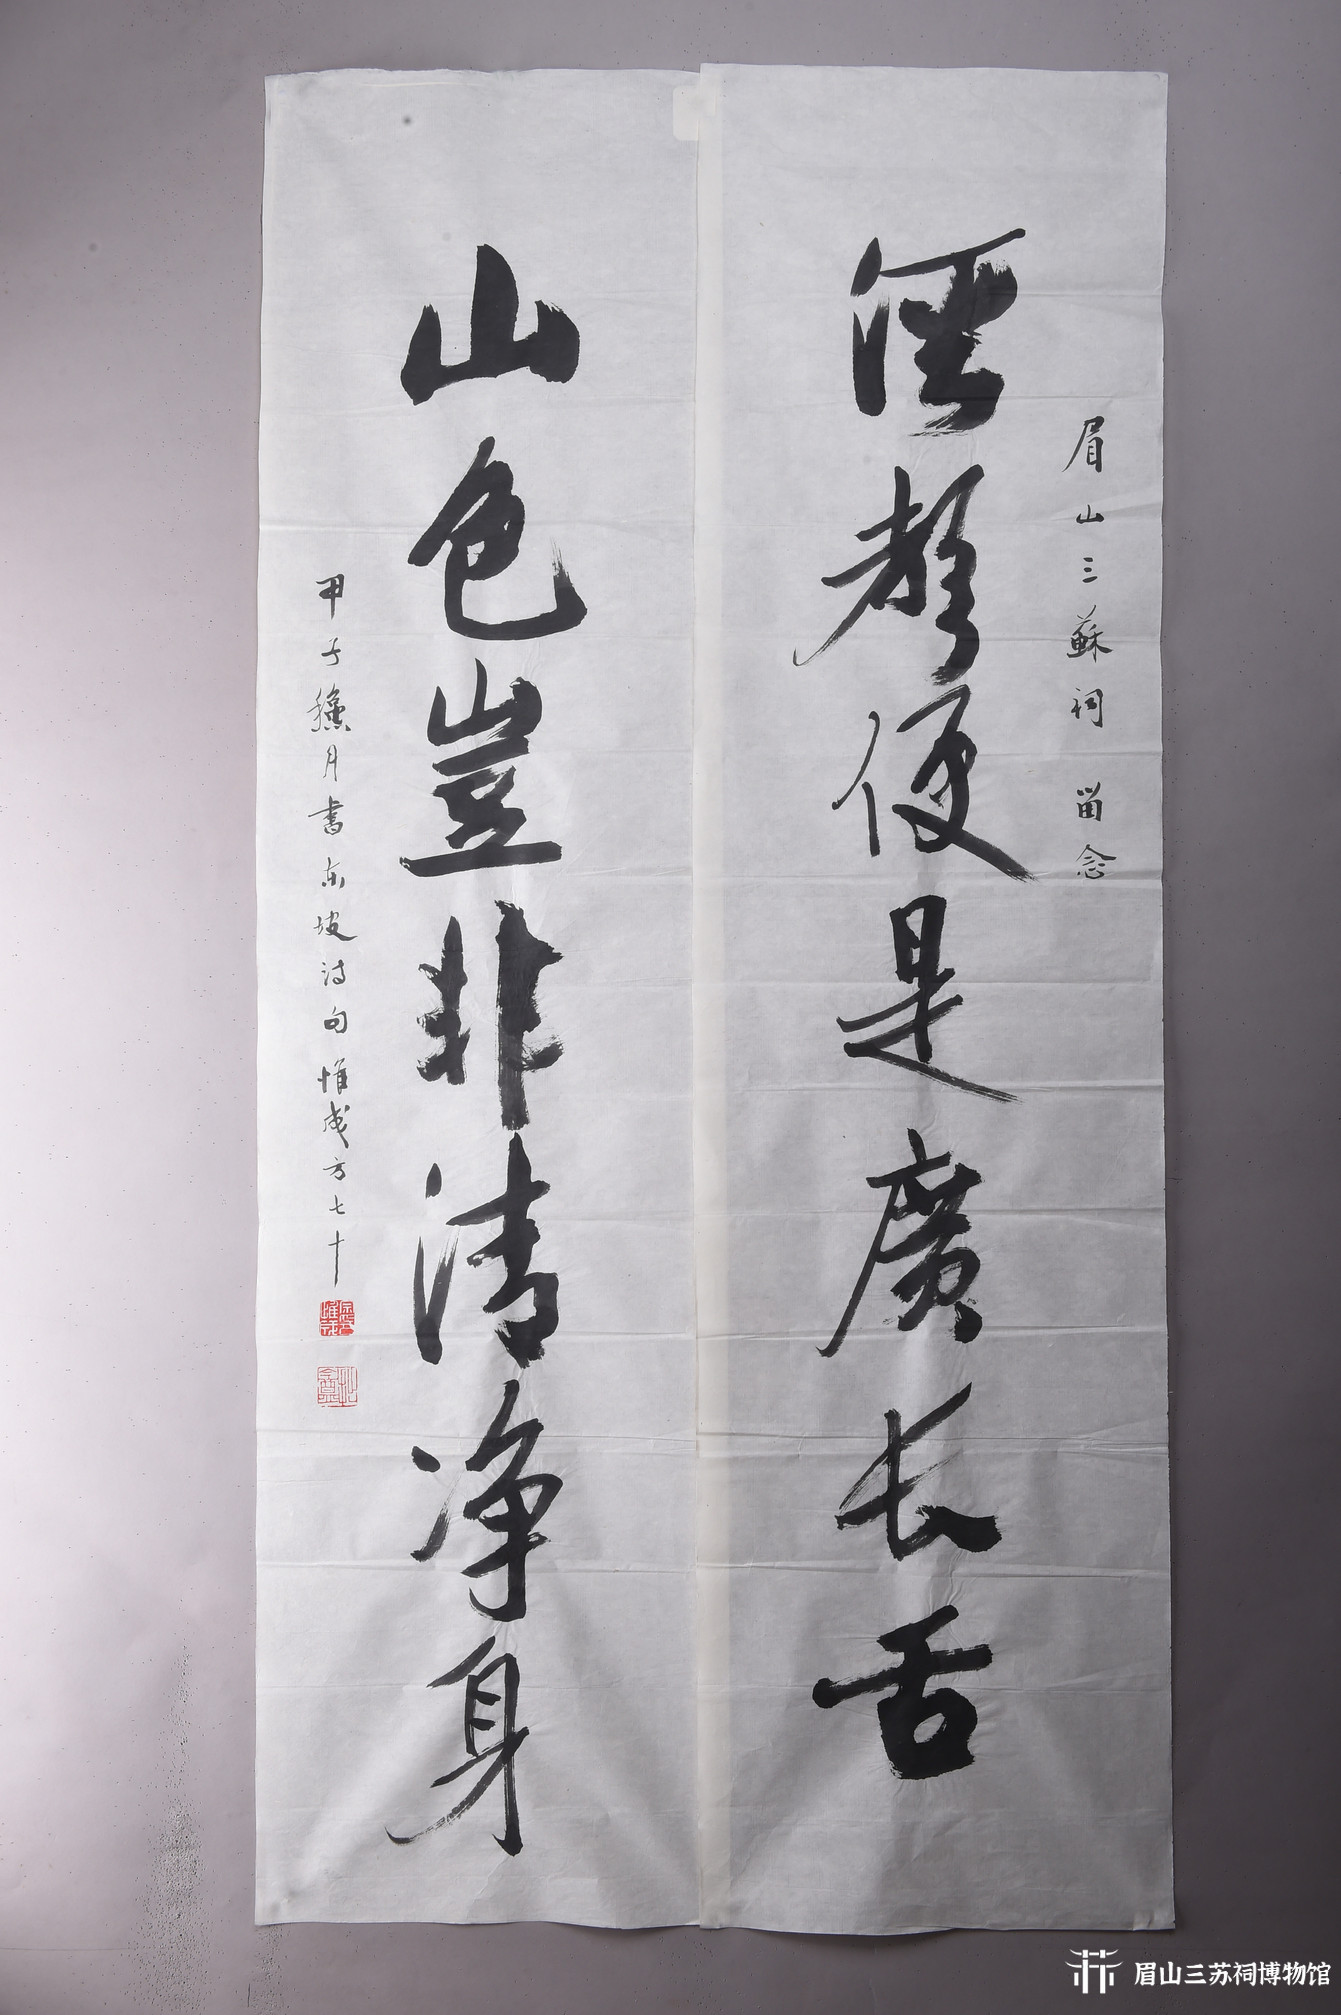 眉山三蘇祠 留念
溪聲便是廣长舌
山色豈非清净身
甲子穐月書东坡诗句惟成方七十
眉山三苏祠博物馆